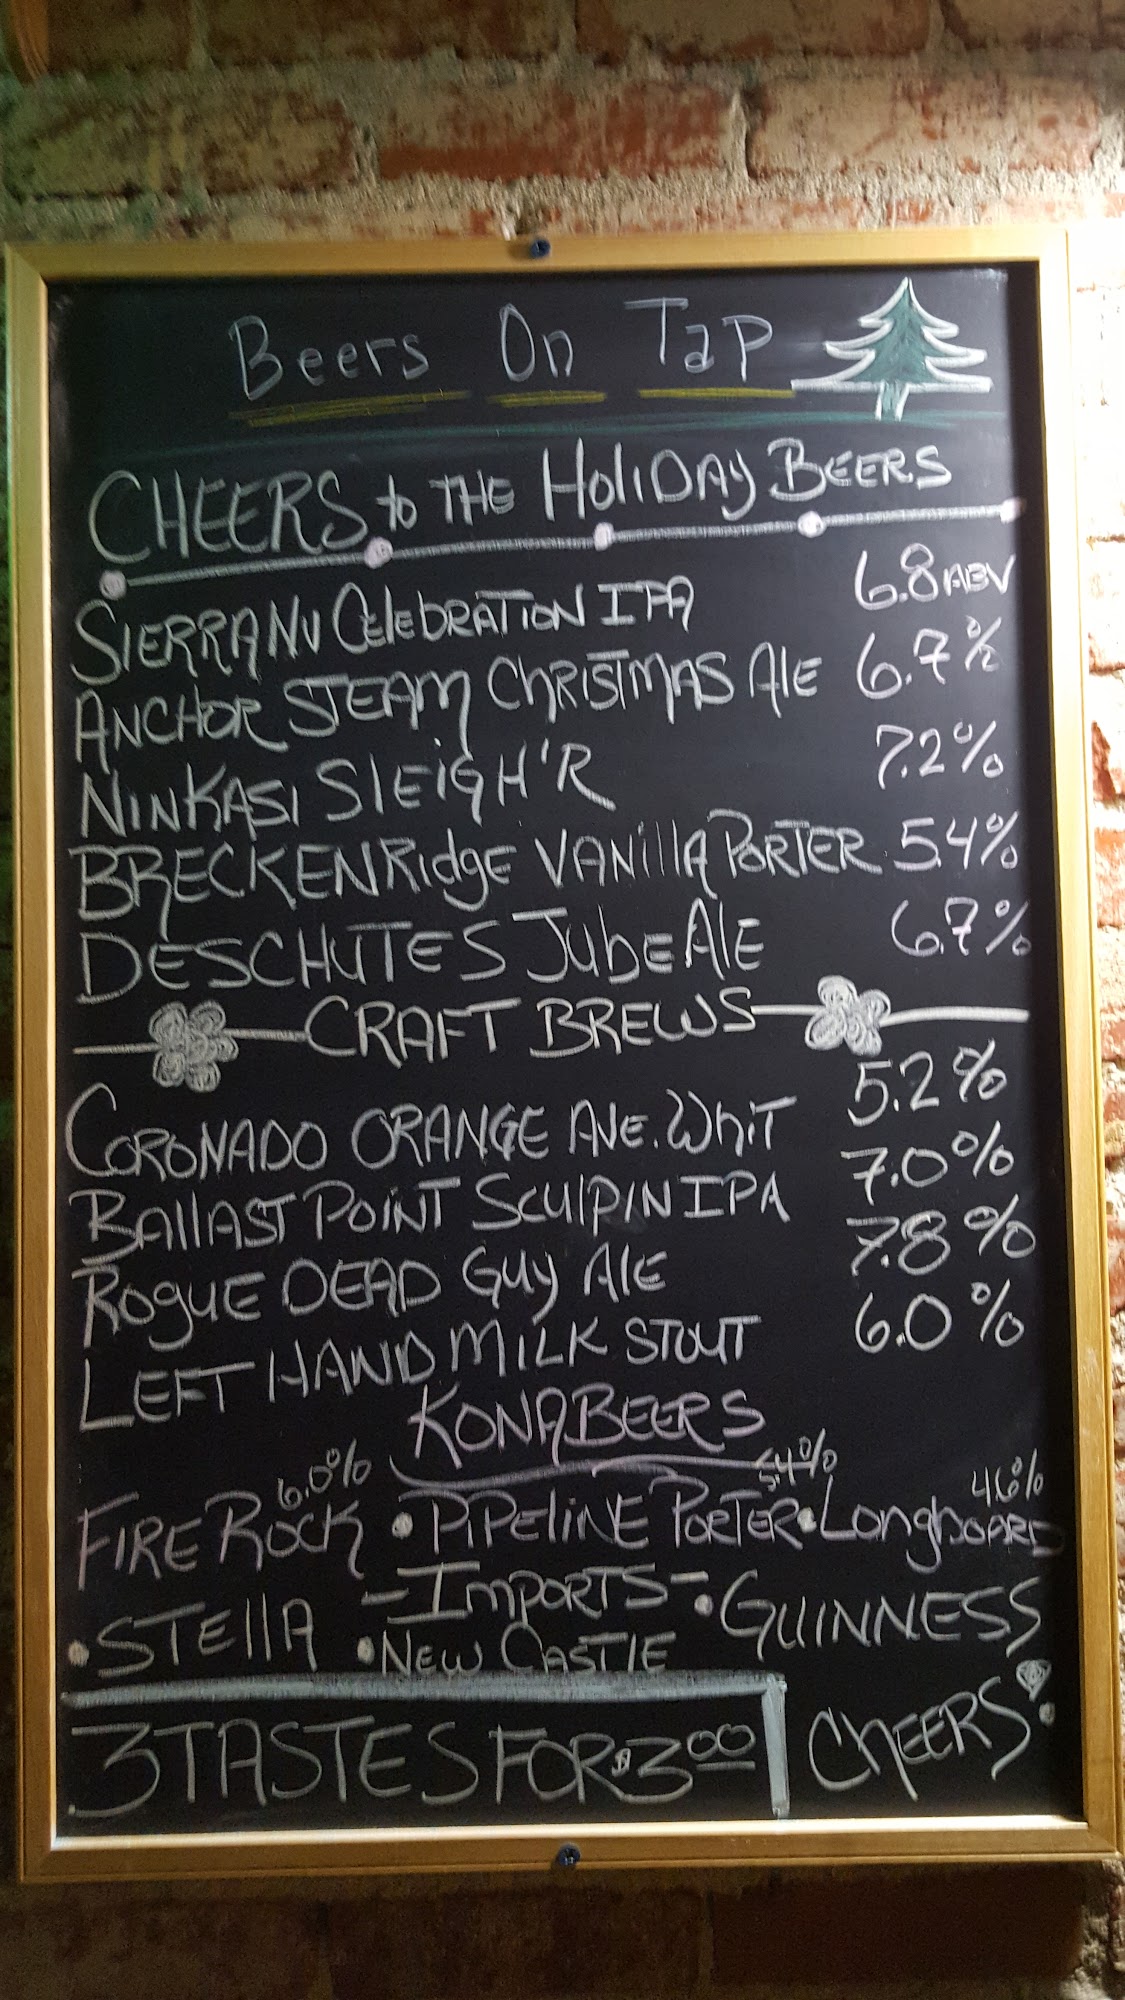 Beers On Tap
CHEERS to THE HOLIDAY BEERS
SIERRA NV CELEBRATION IPA 6.8 ABV
ANCHOR STEAM CHRISTMAS ALE 6.7%
NINKASI SLEIGH'R 7.2%
BRECKENRIDGE VANILLA PORTER 5.4%
DESCHUTES JUBEALE 6.7%
CRAFT BREWS
CORONADO ORANGE AVE. WHIT 5.2%
BALLAST POINT SCULPIN IPA 7.0%
ROGUE DEAD GUY ALE 7.8%
LEFT HAND MILK STOUT 6.0%
KONA BEERS
6.0% 5.4% 4.6%
FIRE ROCK • PIPELINE PORTER • LONGBOARD
- IMPORTS -
• STELLA • NEW CASTLE • GUINNESS
3 TASTES FOR $3.00 CHEERS!